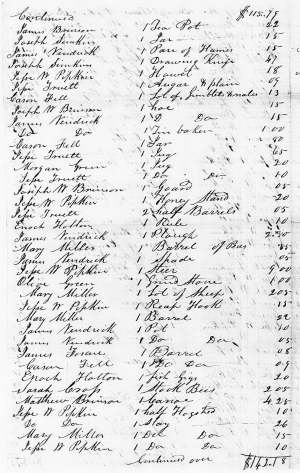 Continued $115.79
James Brinson 1 Tea Pot 22
Joseph Simkins 1 Jar 15
James Kendrick 1 Pare of Hames 15
Joseph Simkins 1 Drawing Knife 67
Jepe W Popkin 1 Howel 18
Jepe Truett 1 Augar & plain 09
Cason Fell 1 Lot of & 13
Joseph W Brinson 1 hoe 15
James Kendrick 1 D Do 15
Do Do 1 Tin baker 1.00
Cason Fell 1 Jar 80
Jepe Truett 1 Jug 65
Morgan Green 1 Jug 20
Jepe Truett 1 Do Do 10
Joseph W Brinson 1 Goard 05
Jepe W Popkin 1 Honey Stand 20
Jepe Truett 2 half Barrels 05
Enoch Hatton 1 10
James Kendrick 1 Plough 2.50
Mary Miller 1 Barrel of 85
James Kendrick 1 Spade 05
Jepe W Popkin 1 Steer 9.00
Olive Green 1 Grind Stone 1.00
Mary Miller 1 Lot of Sheep 2.05
Jepe W Popkin 1 Reap Hook 15
Mary Miller 1 Barrel 22
James Kendrick 1 Pot 10
James Kendrick 1 Do Do 05
James 1 Barrel 08
Cason Fell 1 Do Do 09
Enoch Hatton 1 20
Sarah 1 Stock Bees 2.02
Matthew Brinson 1 Canoe 4.25
Jepe W Popkin 1 half Hogshed 10
Do Do 1 Slay 26
Mary Miller 1 Do Do 15
Jepe W Popkin 1 Do Do 10
Continued over $142.18